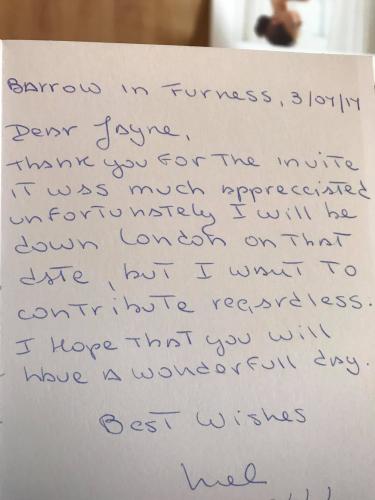 Barrow in Furness, 3/07/17
Dear Jayne,
Thank you for the invite
it was much appreciated
unfortunately I will be
down London on that
date, but I want to
contribute regardless.
I Hope that you will
have a wonderfull day.
Best Wishes
Mel